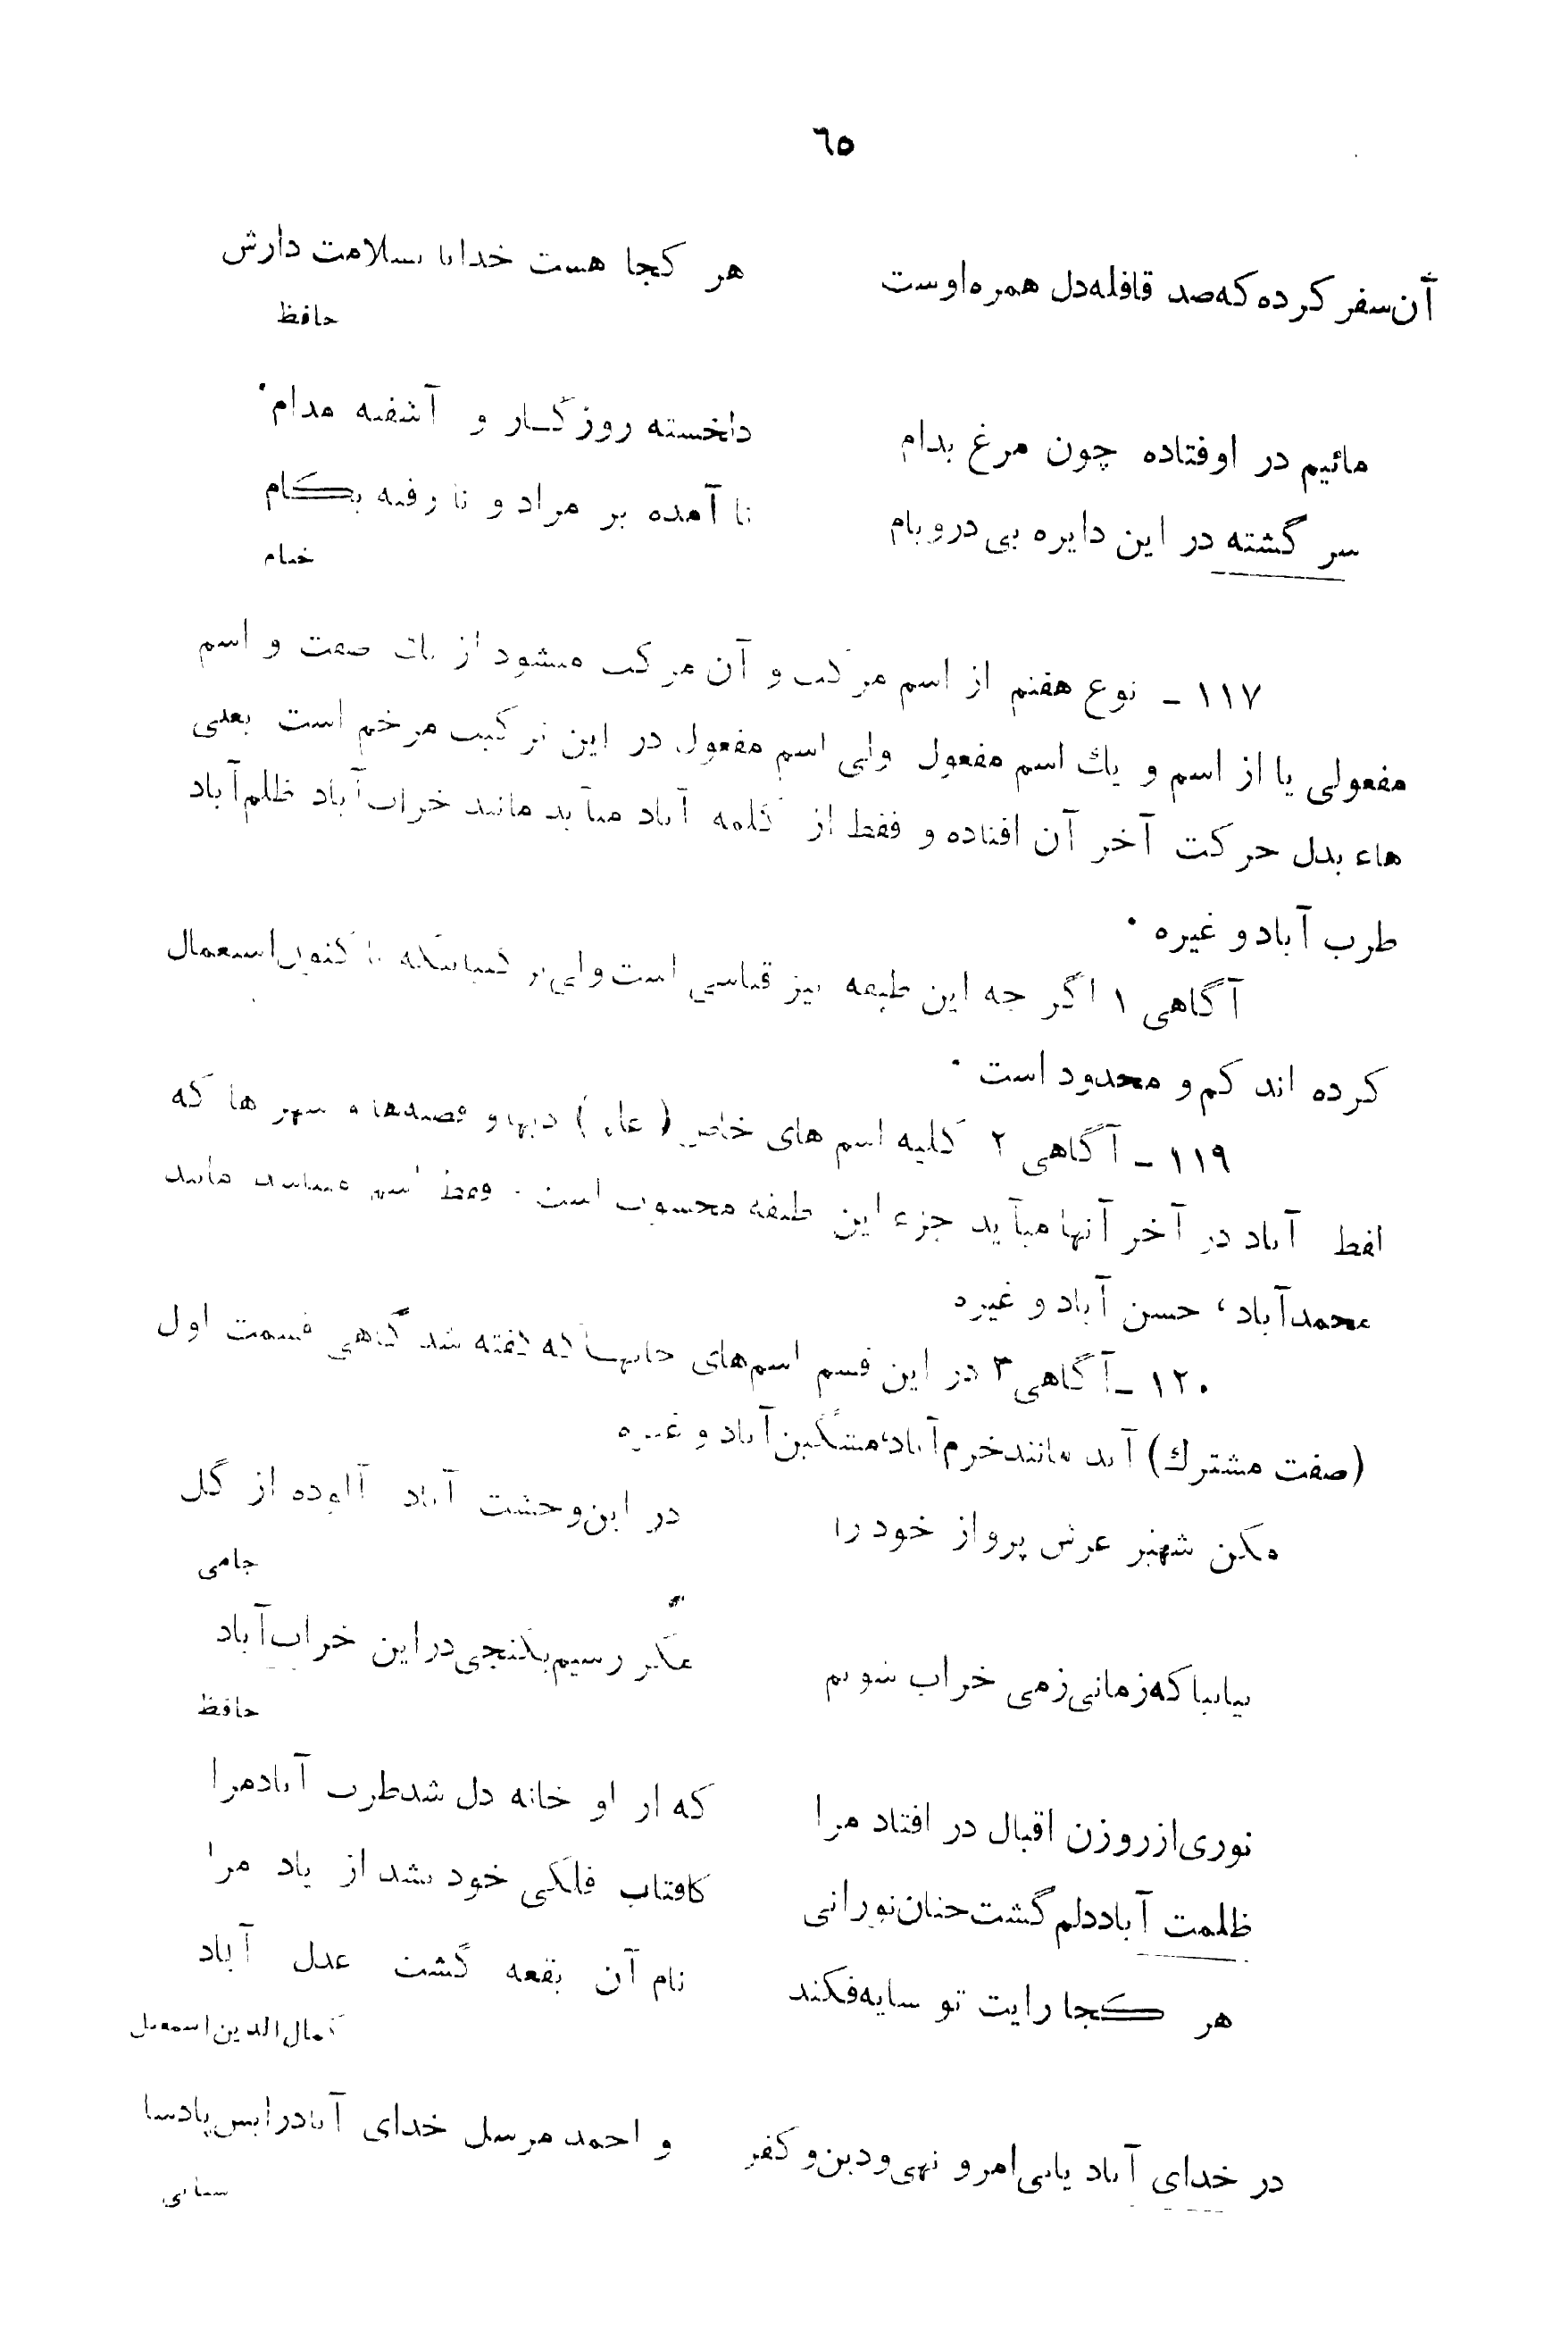 ٦٥
آن سفر کرده که صد قافله دل همره اوست هر کجا هست خدایا بسلامت دارش
حافظ
مائیم در اوفتاده چون مرغ بدام دلخسته روزگار و آشفته مدام
سر گشته در این دایره بی در و بام نا آمده بر مراد و نا رفته بکام
خیام
١١٧ ـ نوع هفتم از اسم مرکب و آن مرکب میشود از یك صفت و اسم
مفعولی یا از اسم و یك اسم مفعول ولی اسم مفعول در این ترکیب مرخم است یعنی
هاء بدل حرکت آخر آن افتاده و فقط از کلمه آباد میآید مانند خراب آباد ظلم آباد
طرب آباد و غیره ٠
آگاهی ١ اگر چه این طبقه نیز قیاسی است ولی بر کلماتیکه تا کنون استعمال
کرده اند کم و محدود است ٠
١١٩ ـ آگاهی ٢ کلیه اسم های خاص (علم) دیها و قصبه‌ها و شهر ها که
لفظ آباد در آخر آنها میآید جزء این طبقه محسوب است ٠ فقط اسم میباشند مانند
محمد آباد، حسن آباد و غیره
١٢٠ ـ آگاهی ٣ در این قسم اسم‌های جایها که گفته شد گاهی قسمت اول
(صفت مشترك) آید مانند خرم آباد، مشگین آباد و غیره
مکن شهپر عرش پرواز خود را در این وحشت آباد آلوده از گل
جامی
بیا بیا که زمانی ز می خراب شویم مگر رسیم بگنجی در این خراب آباد
حافظ
نوری از روزن اقبال در افتاد مرا که از او خانه دل شد طرب آباد مرا
ظلمت آباد دلم گشت چنان نورانی کافتاب فلکی خود بشد از یاد مرا
هر کجا رایت تو سایه فکند نام آن بقعه گشت عدل آباد
کمال الدین اسمعیل
در خدای آباد یابی امر و نهی و دین و کفر و احمد مرسل خدای آباد را بس پادشا
سنائی